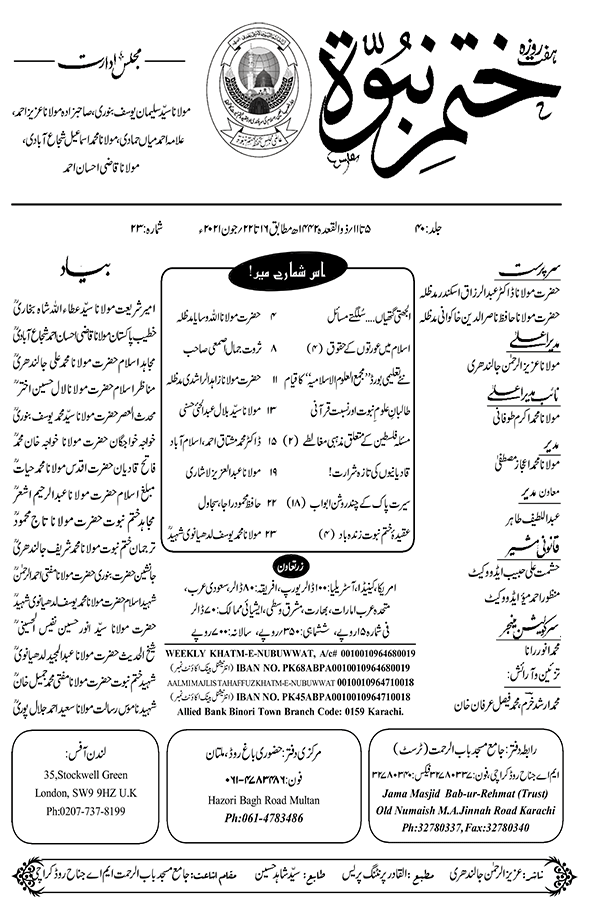 ہفت روزہ
ختم نبوّة
مجلس ادارت
مولانا سیّد سلیمان یوسف بنوری، صاحبزادہ مولانا عزیز احمد،
علامہ احمد میاں حمادی، مولانا محمد اسماعیل شجاع آبادی،
مولانا قاضی احسان احمد
جلد: ۴۰
۵ تا ۱۱/ ذوالقعدہ ۱۴۴۲ھ مطابق ۱۶ تا ۲۲/ جون ۲۰۲۱ء
شمارہ: ۲۳
سرپرست
حضرت مولانا ڈاکٹر عبدالرزاق اسکندر مدظلہ
حضرت مولانا حافظ ناصر الدین خاکوانی مدظلہ
مدیر اعلیٰ
مولانا عزیز الرحمٰن جالندھری
نائب مدیر اعلیٰ
مولانا محمد اکرم طوفانی
مدیر
مولانا محمد اعجاز مصطفیٰ
معاون مدیر
عبداللطیف طاہر
قانونی مشیر
حشمت علی حبیب ایڈووکیٹ
منظور احمد میؤ ایڈووکیٹ
سرکولیشن منیجر
محمد انور رانا
تزئین و آرائش:
محمد ارشد خرم، محمد فیصل عرفان خان
اس شمارے میں!
الجھتی گتھیاں.... سُلگتے مسائل ۴ حضرت مولانا اللہ وسایا مدظلہ
اسلام میں عورتوں کے حقوق (۴) ۸ ثروت جمال اصمعی صاحب
نئے تعلیمی بورڈ ”مجمع العلوم الاسلامیہ“ کا قیام ۱۱ حضرت مولانا زاہد الراشدی مدظلہ
طالبانِ علومِ نبوت اور نسبت قرآنی ۱۳ مولانا سیّد بلال عبدالحئی حسنی
مسئلہ فلسطین کے متعلق مذہبی مغالطے (۲) ۱۵ ڈاکٹر محمد مشتاق احمد، اسلام آباد
قادیانیوں کی تازہ شرارت! ۱۹ مولانا عبدالعزیز لاشاری
سیرت پاک کے چند روشن ابواب (۱۸) ۲۲ حافظ محمود راجا، سجاول
عقیدۂ ختم نبوت زندہ باد (۴) ۲۳ مولانا محمد یوسف لدھیانوی شہیدؒ
بیاد
امیر شریعت مولانا سیّد عطاء اللہ شاہ بخاریؒ
خطیب پاکستان مولانا قاضی احسان احمد شجاع آبادیؒ
مجاہد اسلام حضرت مولانا محمد علی جالندھریؒ
مناظر اسلام حضرت مولانا لال حسین اخترؒ
محدث العصر حضرت مولانا سیّد محمد یوسف بنوریؒ
خواجہ خواجگان حضرت مولانا خواجہ خان محمدؒ
فاتح قادیان حضرت اقدس مولانا محمد حیاتؒ
مبلغ اسلام حضرت مولانا عبدالرحیم اشعرؒ
مجاہد ختم نبوت حضرت مولانا تاج محمودؒ
ترجمان ختم نبوت حضرت مولانا محمد شریف جالندھریؒ
جانشین حضرت بنوری حضرت مولانا مفتی احمد الرحمٰنؒ
شہید اسلام حضرت مولانا محمد یوسف لدھیانوی شہیدؒ
حضرت مولانا سیّد انور حسین نفیس الحسینیؒ
شیخ الحدیث حضرت مولانا عبدالمجید لدھیانویؒ
شہید ختم نبوت حضرت مولانا مفتی محمد جمیل خانؒ
شہید ناموس رسالت مولانا سعید احمد جلال پوریؒ
زرتعاون
امریکا، کینیڈا، آسٹریلیا: ۱۰۰ ڈالر یورپ، افریقہ: ۸۰ ڈالر، سعودی عرب،
متحدہ عرب امارات، بھارت، مشرق وسطیٰ، ایشیائی ممالک: ۷۰ ڈالر
فی شمارہ ۱۵ روپے، ششماہی: ۳۵۰ روپے، سالانہ: ۷۰۰ روپے
WEEKLY KHATM-E-NUBUWWAT, A/c# 0010010964680019
IBAN NO. PK68ABPA0010010964680019 (انٹرنیشنل بینک اکاؤنٹ نمبر)
AALMI MAJLIS TAHAFFUZ KHATM-E-NUBUWWAT 0010010964710018
IBAN NO. PK45ABPA0010010964710018 (انٹرنیشنل بینک اکاؤنٹ نمبر)
Allied Bank Binori Town Branch Code: 0159 Karachi.
رابطہ دفتر: جامع مسجد باب الرحمت (ٹرسٹ)
ایم اے جناح روڈ کراچی، فون: ۳۲۷۸۰۳۳۷ فیکس: ۳۲۷۸۰۳۴۰
Jama Masjid Bab-ur-Rehmat (Trust)
Old Numaish M.A.Jinnah Road Karachi
Ph:32780337, Fax:32780340
مرکزی دفتر: حضوری باغ روڈ، ملتان
فون: ۰۶۱-۴۷۸۳۴۸۶
Hazori Bagh Road Multan
Ph:061-4783486
لندن آفس:
35,Stockwell Green
London, SW9 9HZ U.K
Ph:0207-737-8199
ناشر: عزیز الرحمٰن جالندھری مطبع: القادر پرنٹنگ پریس طابع: سیّد شاہد حسین مقام اشاعت: جامع مسجد باب الرحمت ایم اے جناح روڈ کراچی